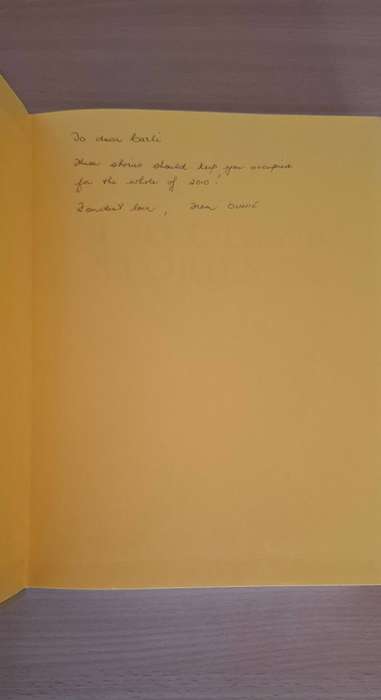 To dear Carli
These stories should keep you occupied
for the whole of 2010!
Fondest love, From